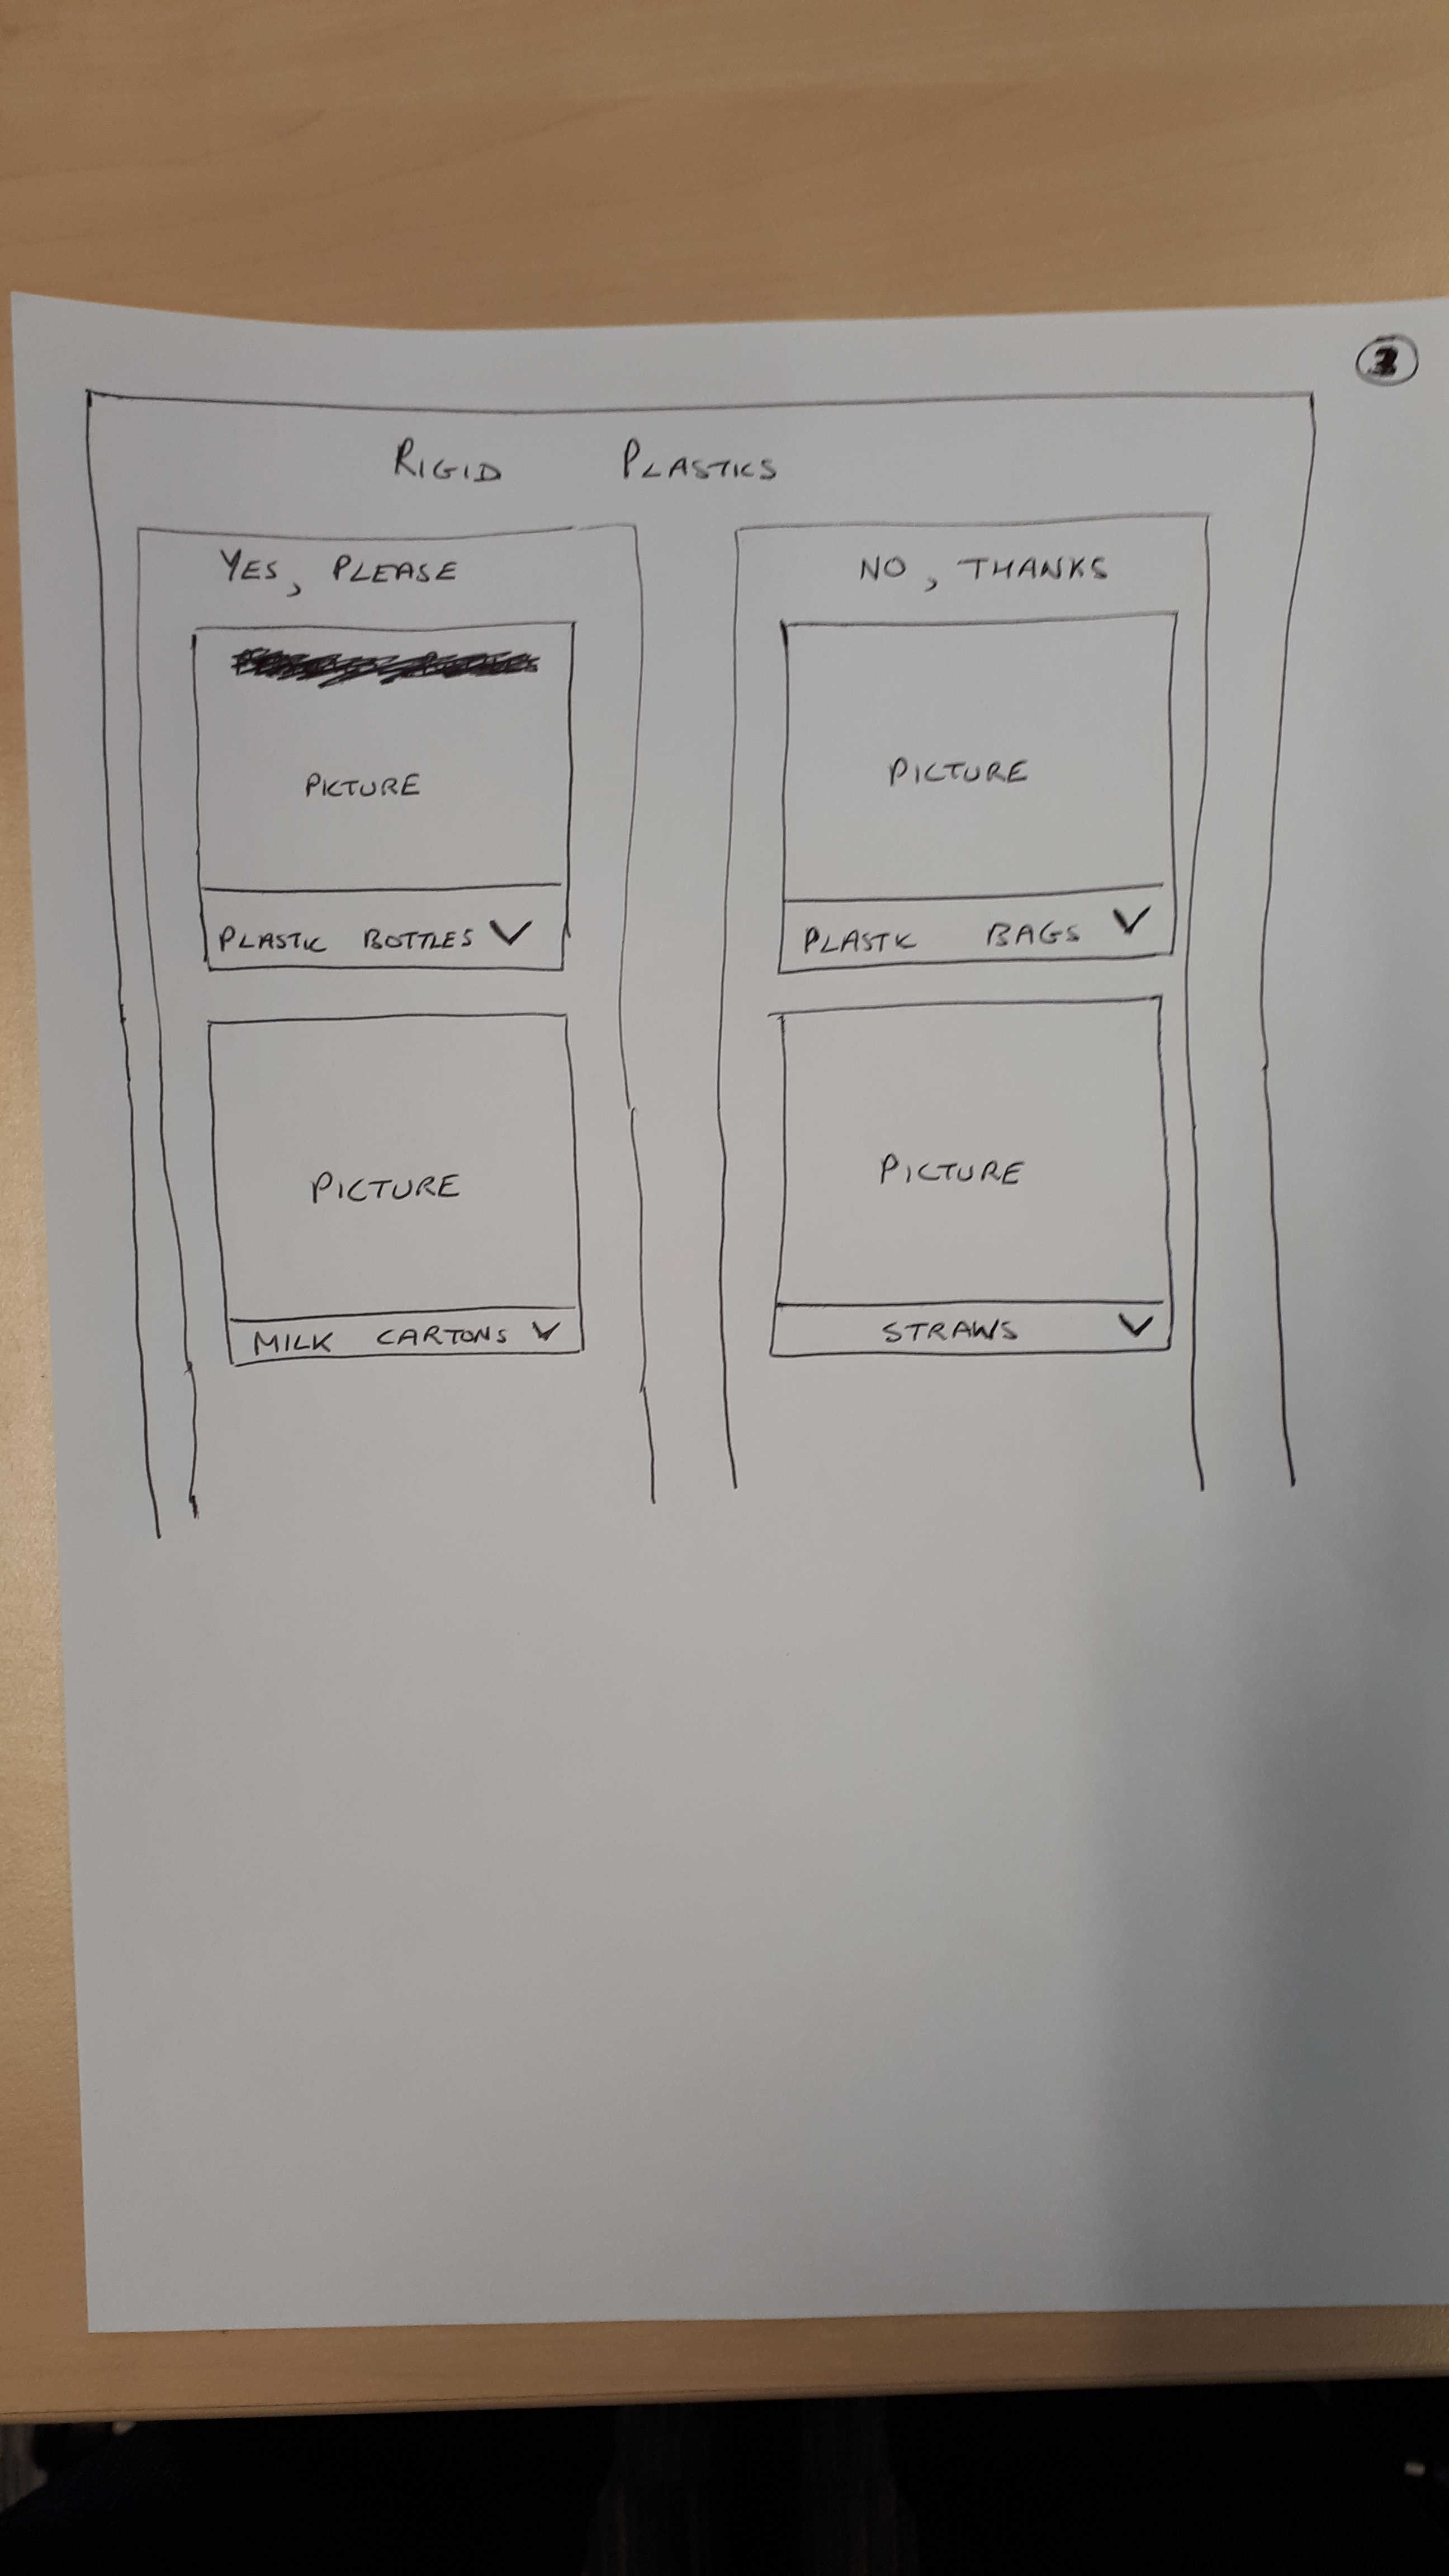 3
RIGID PLASTICS
YES, PLEASE
PICTURE
PLASTIC BOTTLES
PICTURE
MILK CARTONS
NO, THANKS
PICTURE
PLASTIC BAGS
PICTURE
STRAWS